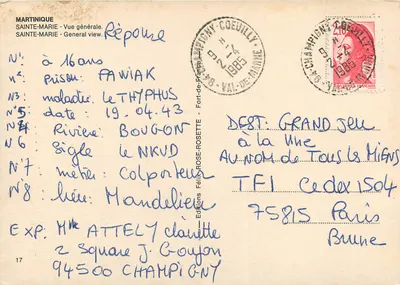 MARTINIQUE
SAINTE-MARIE - Vue générale.
SAINTE-MARIE - General view.
Réponse
N°1 à 16 ans
n°2 prison PAWIAK
N°3 maladie LE THYPHUS
N°5 date : 19.04.43
N°4 Rivière BOUGON
N°6 Sigle le NKVD
N°7 métier Colporteur
N°8 lieu Mandelieu
EXP. Mlle ATTELY clairette
2 Square J. Goujon
94500 CHAMPIGNY
17
Editions Félix ROSE-ROSETTE - Fort-de-France
94 CHAMPIGNY COEUILLY
1985
VAL-DE-MARNE
94 CHAMPIGNY COEUILLY
1985
VAL-DE-MARNE
DEST: GRAND JEU
à la Une
AU NOM de TOUS LES MIENS
TF1 Cedex 1504
75815 Paris
Brune